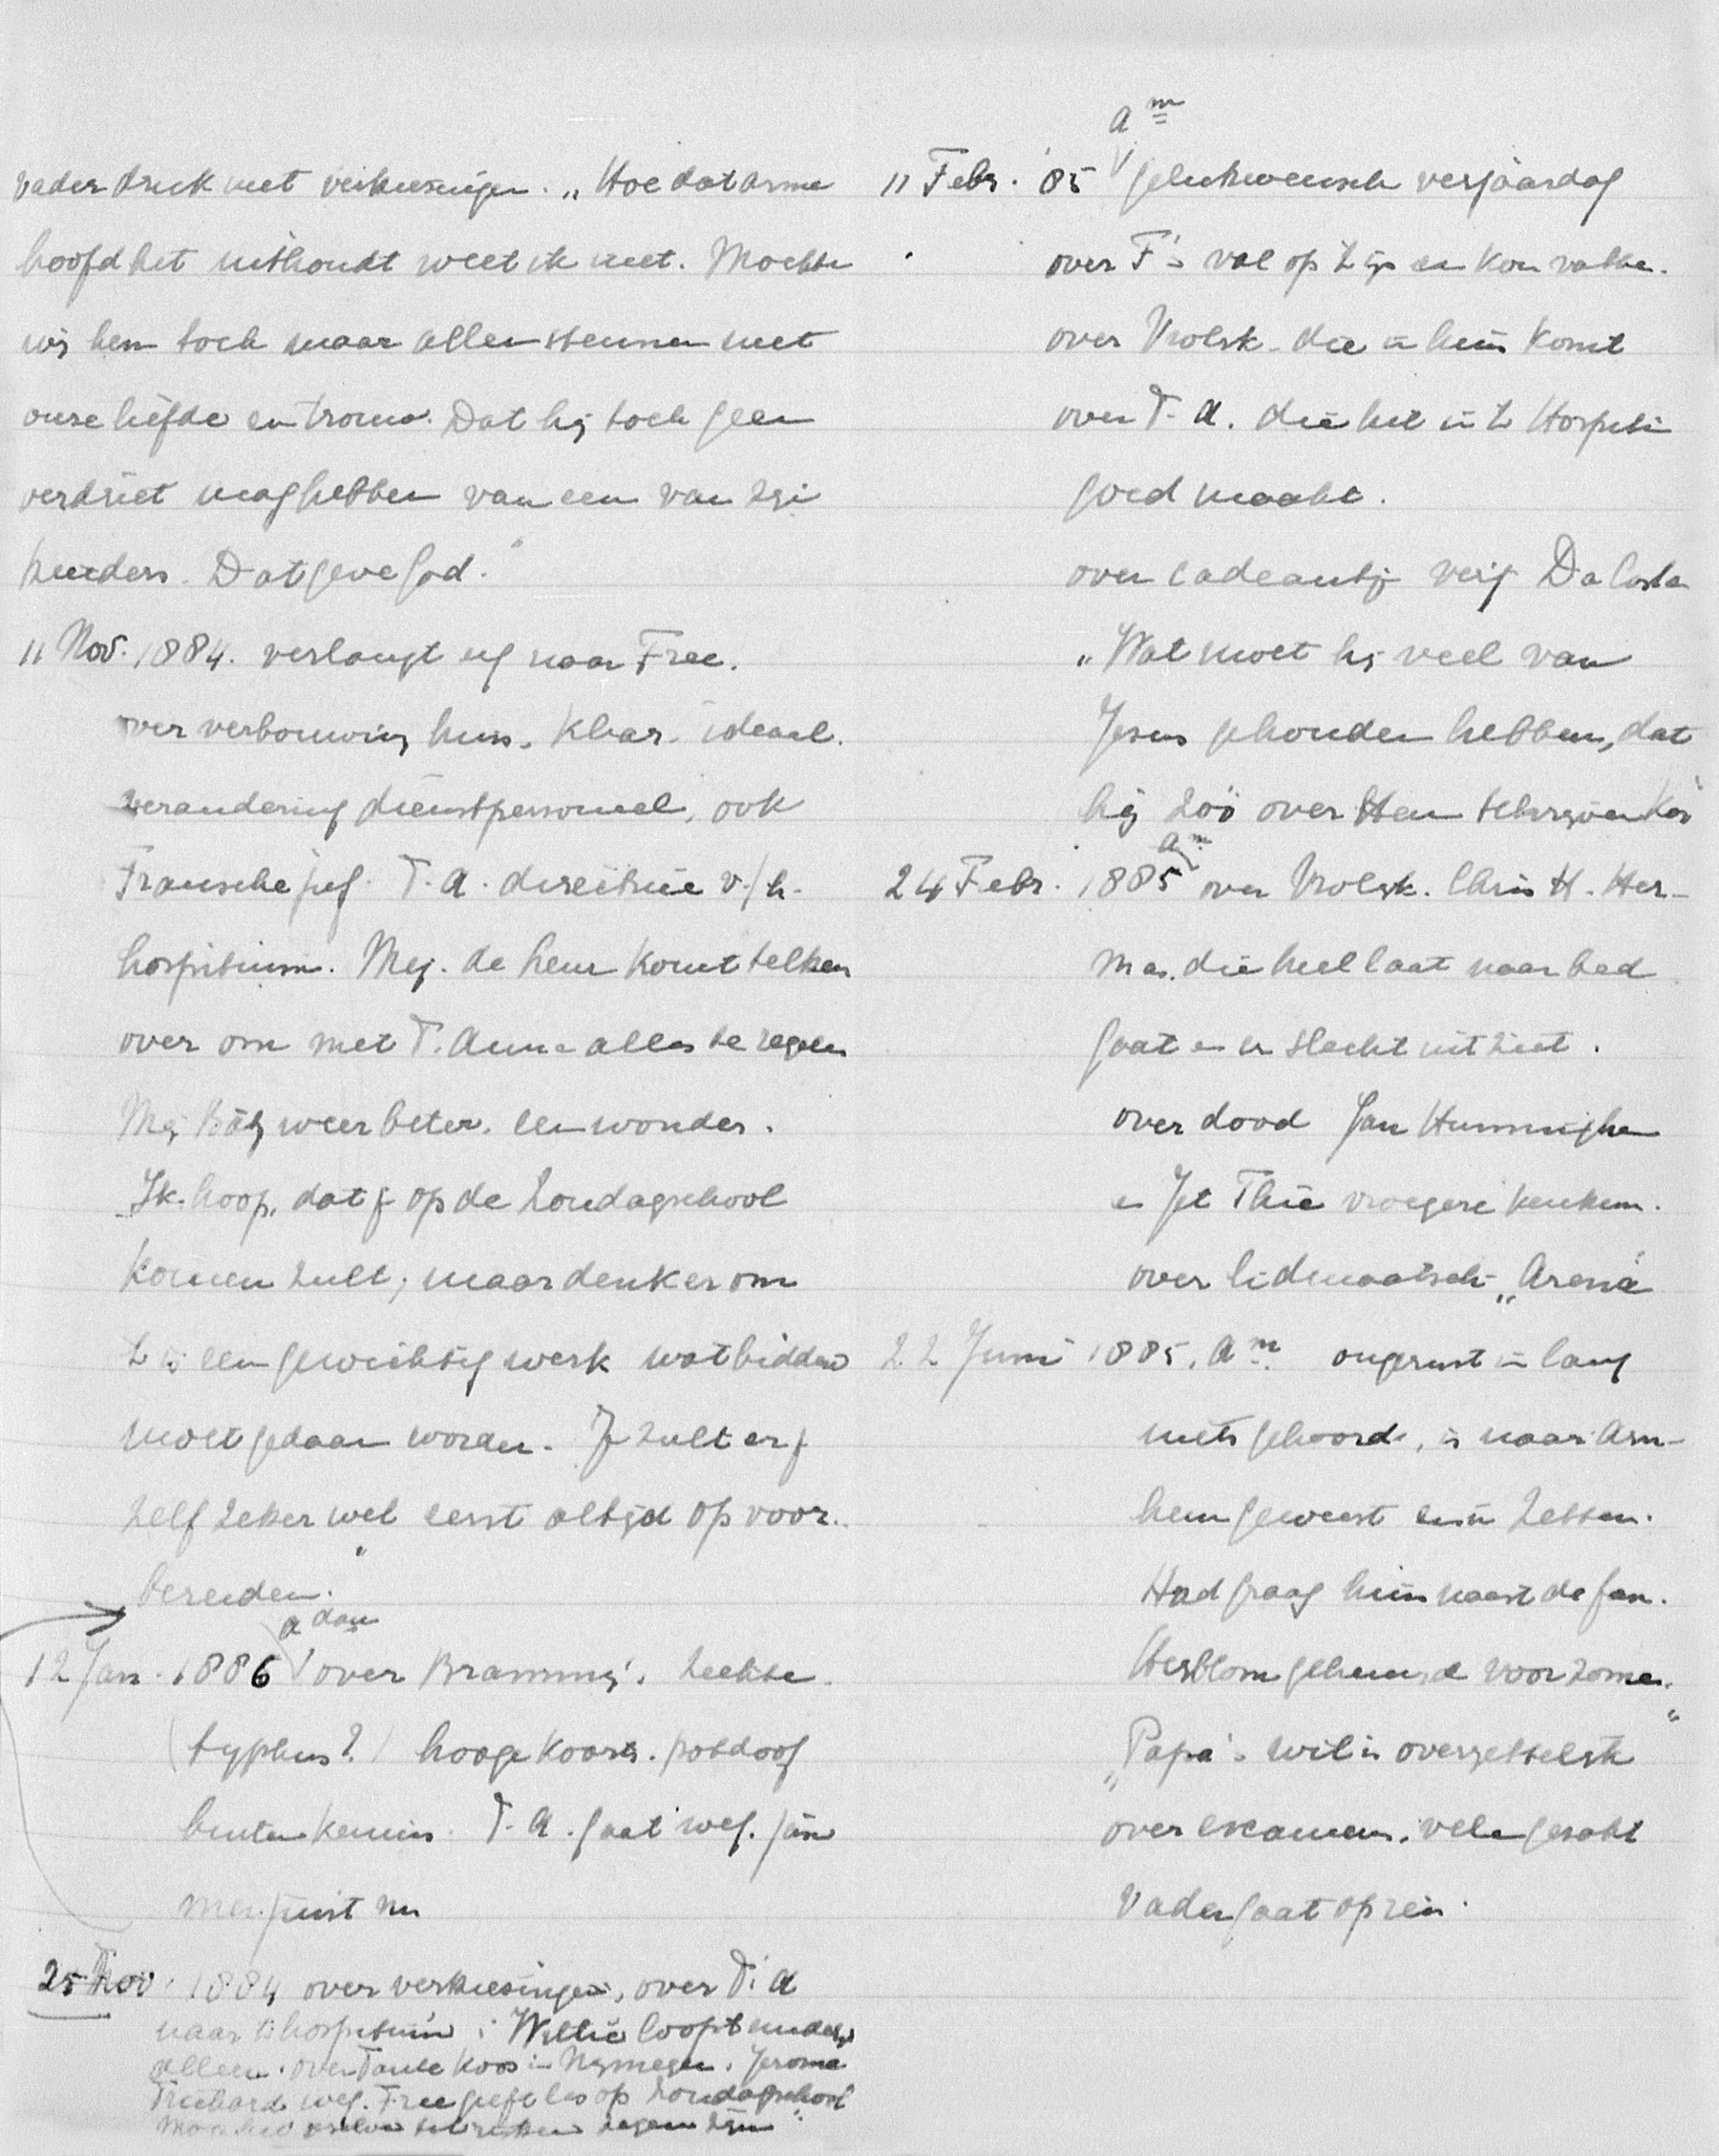 vader druk met verkiezingen. „Hoe dat arme
hoofd het uithoudt weet ik niet. Mochten
wij hem toch maar allen steunen met
onze liefde en trouw. Dat hij toch geen
verdriet mag hebben van een van zijn
kinders. Dat geve God."
11 Nov. 1884. verlangt erg naar Free.
over verbouwing huis, klaar, ideaal.
verandering dienstpersoneel, ook
Fransche juf. T. A. directrice v/h.
hospitium. Mej. de Leur komt telken
over om met T. Anna alles te regelen
Mej weer beter. een wonder.
Ik hoop, dat je op de Zondagschool
komen zult, maar denk er om
't is een gewichtig werk wat biddend
moet gedaan worden. Je zult er je
zelf zeker wel eerst altijd op voor-
bereiden."
a dam
12 Jan. 1886 over Brammy's ziekte
(typhus?) hooge koorts. potdoof
buiten kennis. T. A. gaat weg. jam
mer juist nu
25 Nov. 1884 over verkiezingen, over T. A
naar 't hospitium; Willie loopt
alleen. over Tante Koos in Nijmegen. Jerome
weg. Free geeft les op Zondagschool
a m
11 Febr. '85 gelukwensch verjaardag
over F's val op ijs en kou vatten.
over Vrolijk die in huis komt
over T. A. die het in 't Hospiti
goed maakt.
over cadeautje verj Da Costa
„Wat moet hij veel van
Jezus gehouden hebben, dat
hij zoo over Hem schrijven kon"
a m
24 Febr. 1885 over Vrolijk. Chris H. Her-
mas. die heel laat naar bed
gaat en er slecht uitziet.
over dood Jan Hummighe
en Jet Thie vroegere keukenm.
over lidmaatsch „Arena"
22 Juni 1885. A m ongerust in lang
niets gehoord, is naar Arn-
hem geweest en in Zetten.
Had graag huis naast de fam.
Westblom gehuurd voor zomer.
„Papa's wil is overzettelijk"
over examens, velen gezakt
Vader gaat op reis.